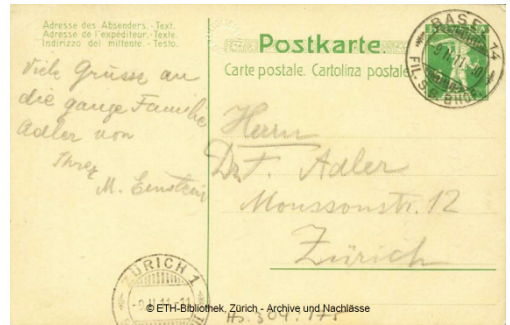 Adresse des Absenders. - Text.
Adresse de l'expéditeur. - Texte.
Indirizzo del mittente. - Testo.
Postkarte.
Carte postale. Cartolina postale
BASEL 14
FIL. S.B. BHOF
Viele Grüsse an
die ganze Familie
Adler von
Ihrer
M. Einstein
Herrn
Dr F. Adler
Moussonstr. 12
Zürich
ZÜRICH 1
Hs. 304:
© ETH-Bibliothek, Zürich - Archive und Nachlässe